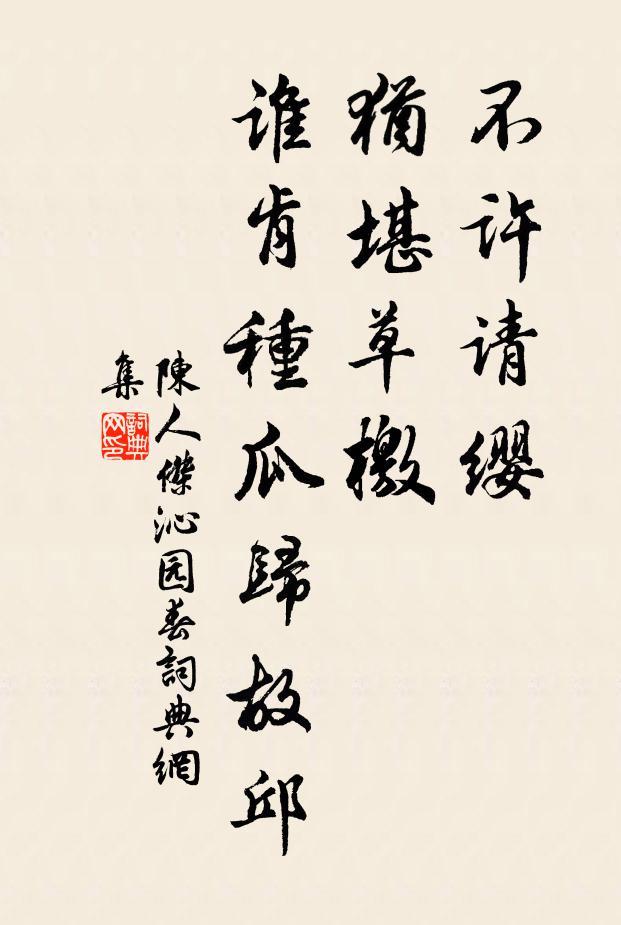 不许请缨
猶堪草檄
谁肯種瓜歸故邱
陳人傑沁园春詞典網
集
詞典
网印